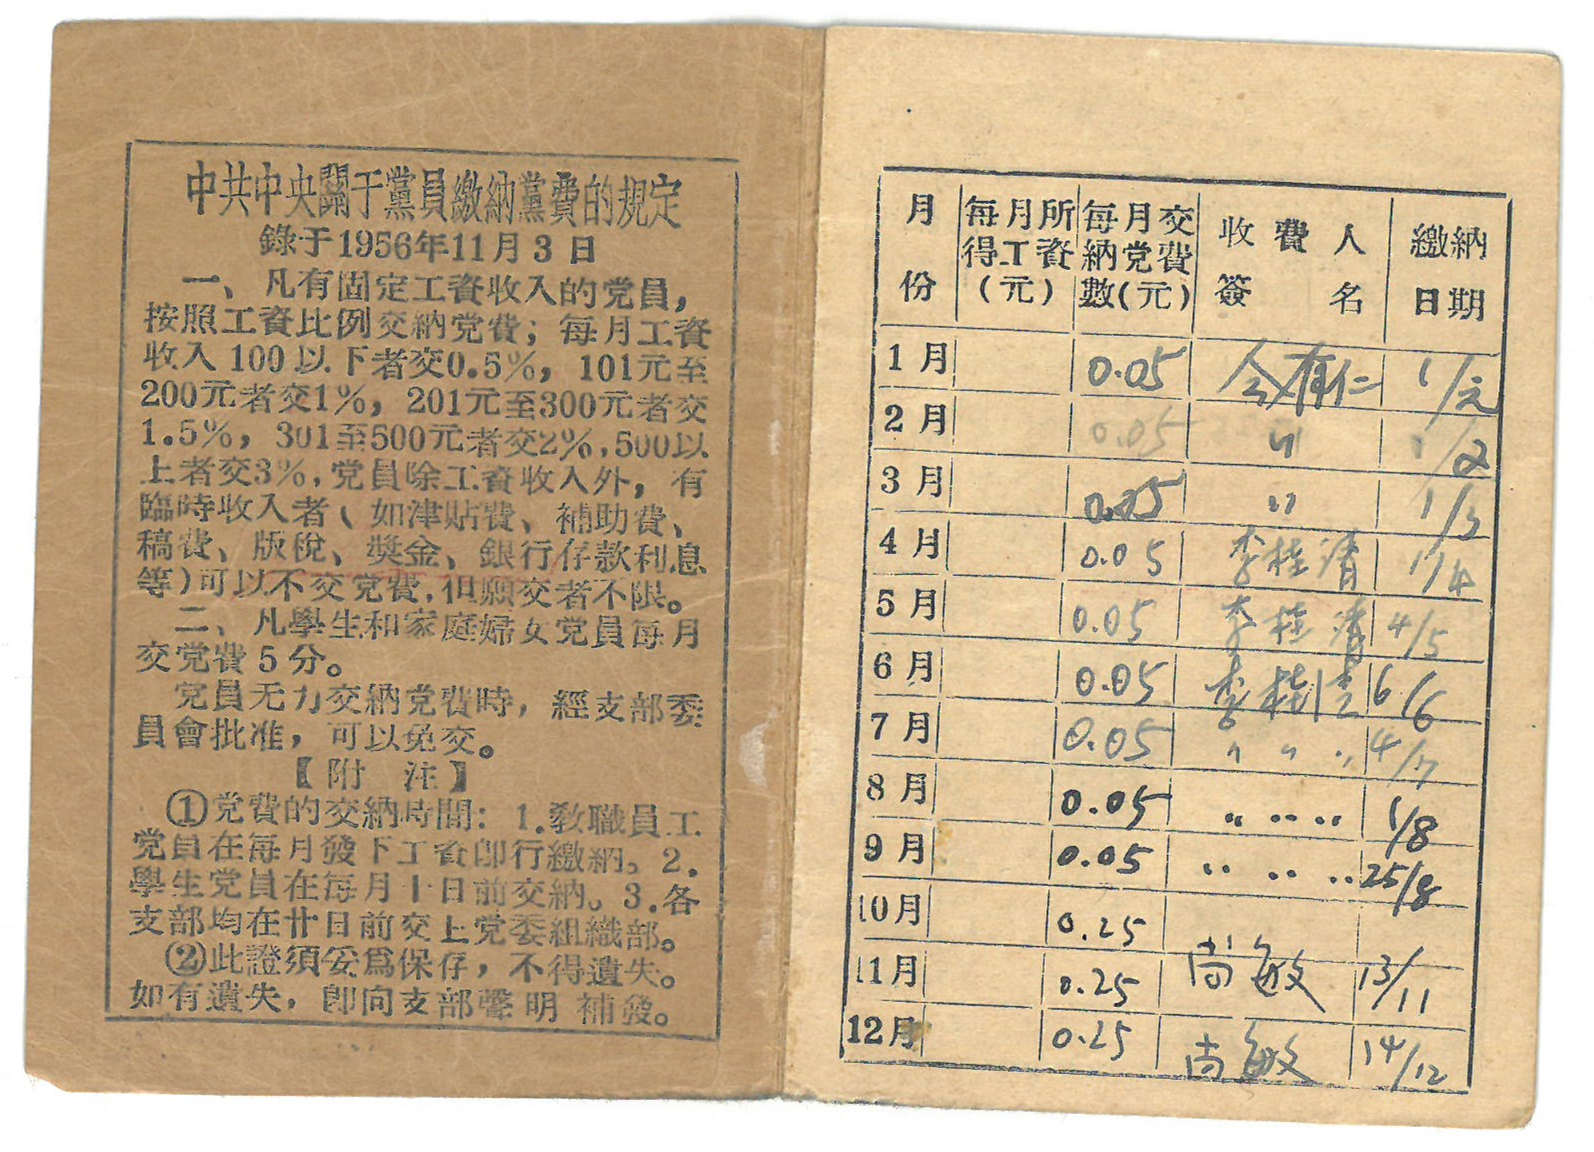 中共中央關于黨員繳納黨費的規定
錄于1956年11月3日
一、凡有固定工資收入的党員，
按照工資比例交納党費；每月工資
收入100以下者交0.5%，101元至
200元者交1%，201元至300元者交
1.5%，301至500元者交2%，500以
上者交3%，党員除工資收入外，有
臨時收入者（如津貼費、補助費、
稿費、版稅、獎金、銀行存款利息
等）可以不交党費，但願交者不限。
二、凡學生和家庭婦女党員每月
交党費5分。
党員无力交納党費時，經支部委
員會批准，可以免交。
【附 注】
①党費的交納時間：1.教職員工
党員在每月發下工資即行繳納。2.
學生党員在每月十日前交納。3.各
支部均在廿日前交上党委組織部。
②此證須妥爲保存，不得遺失。
如有遺失，即向支部聲明補發。
月份 每月所得工資(元) 每月交納党費數(元) 收費人簽名 繳納日期
1月 0.05 有仁 1/元
2月 0.05 〃 1/2
3月 0.05 〃 1/3
4月 0.05 李桂清 17/4
5月 0.05 李桂清 4/5
6月 0.05 李桂清 6/6
7月 0.05 〃 〃 〃 4/7
8月 0.05 〃 〃 〃 1/8
9月 0.05 〃 〃 〃 25/8
10月 0.25
11月 0.25 尚敏 13/11
12月 0.25 尚敏 14/12